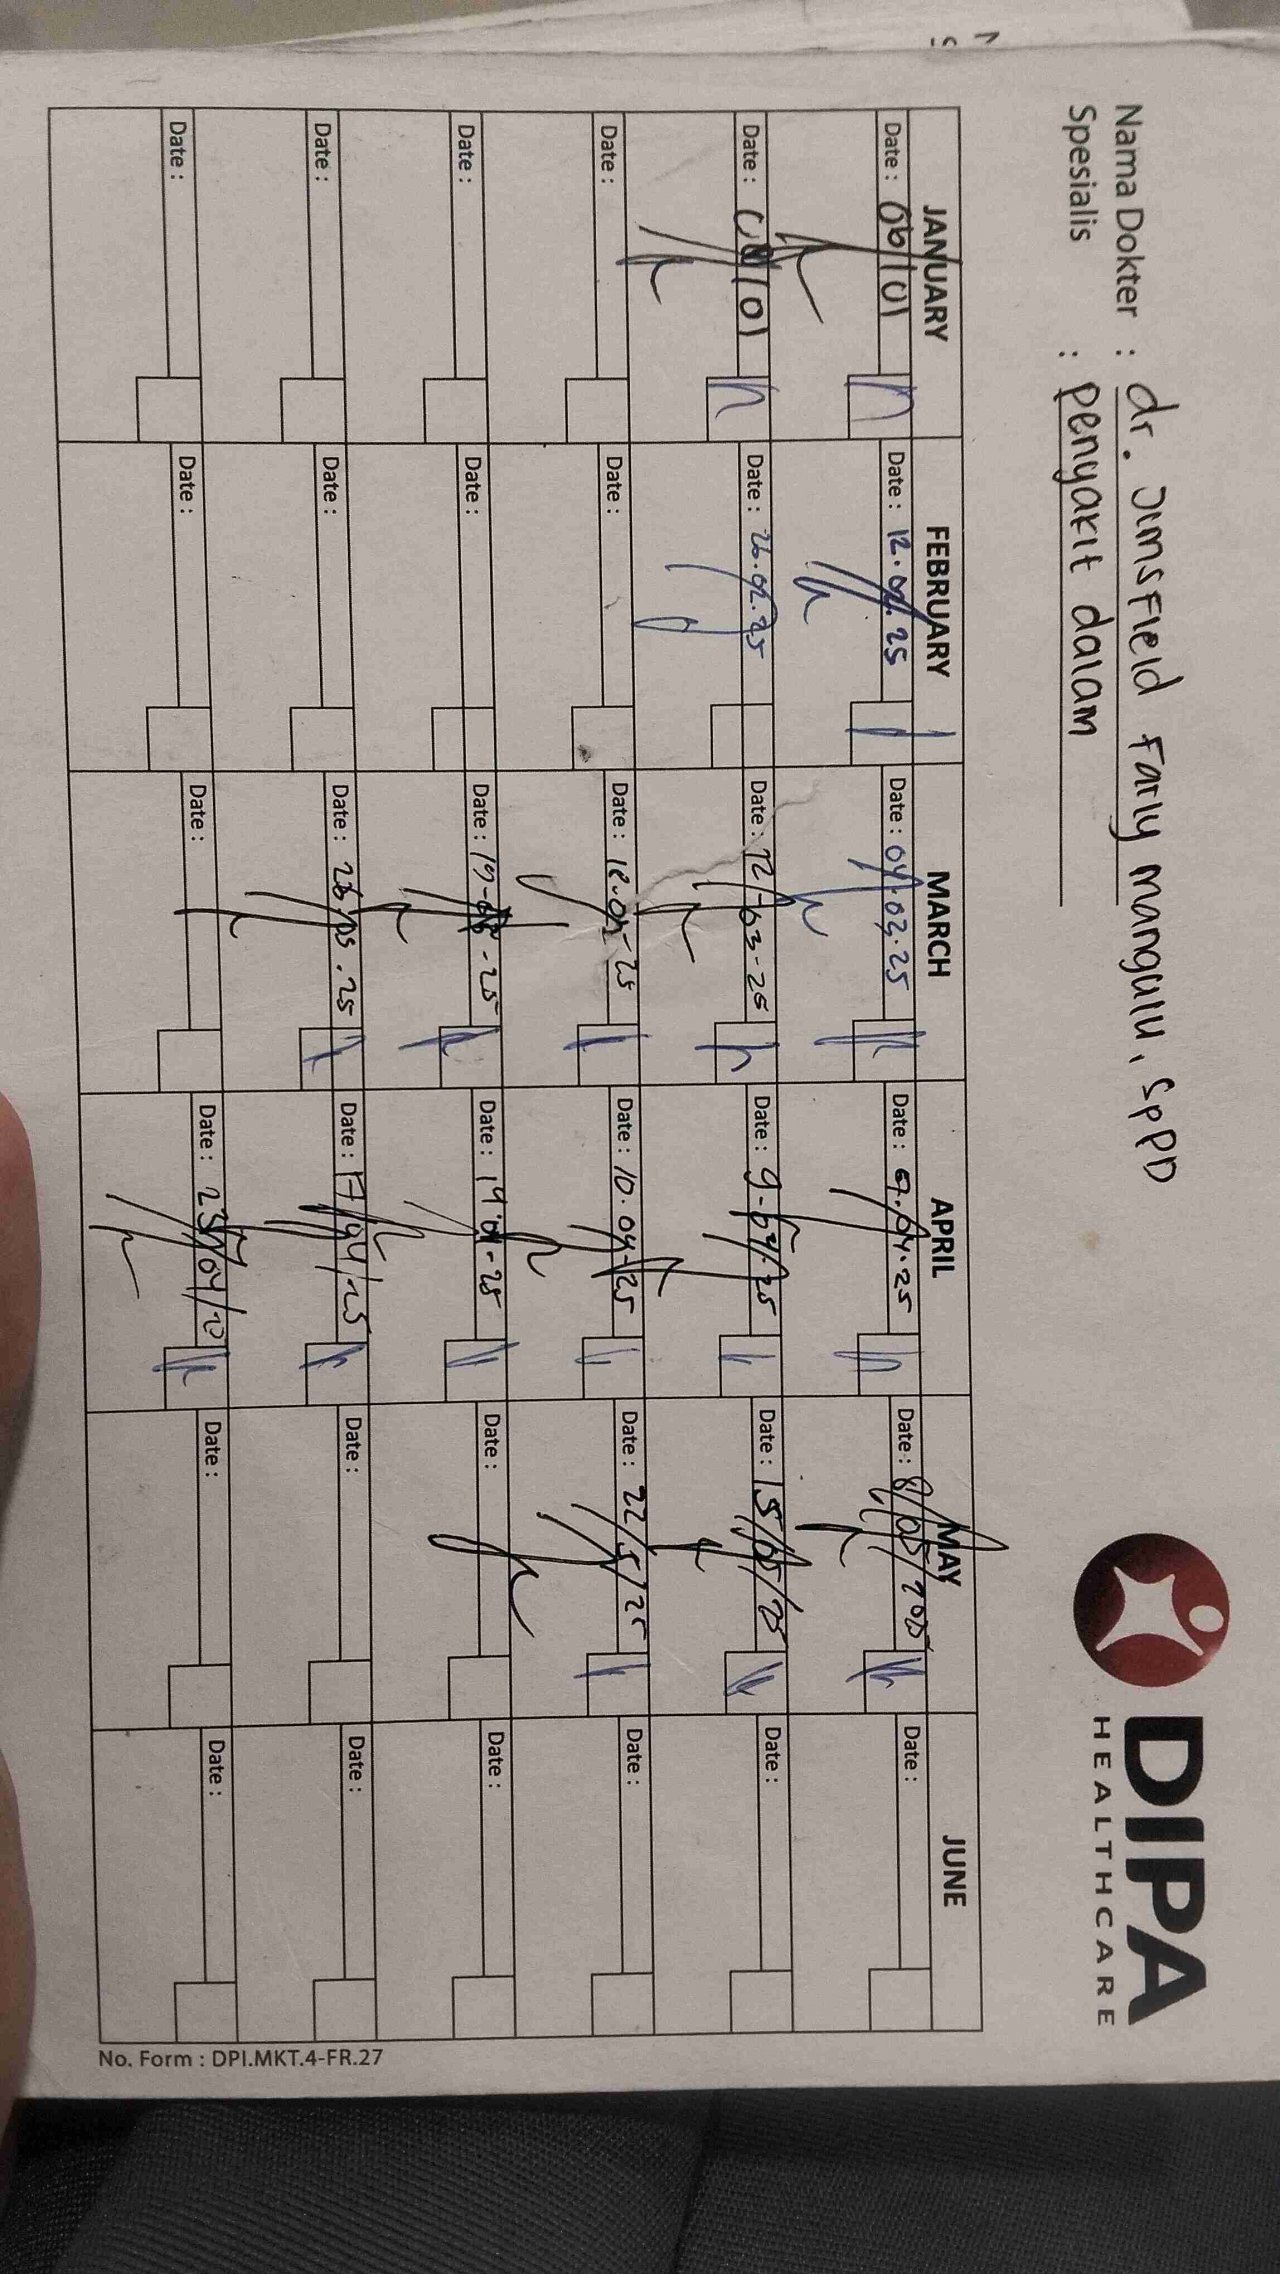 Nama Dokter : dr. Jimsfield Farly mangulu, SpPD
Spesialis : penyakit dalam
DIPA
HEALTHCARE
JANUARY FEBRUARY MARCH APRIL MAY JUNE
Date : 06/01 Date : 12.02.25 Date : 04.03.25 Date : .04.25 Date : 8/05/2025 Date :
Date : /01 Date : 26.02.25 Date : 12-03-25 Date : 9-04-25 Date : 15/05/25 Date :
Date : Date : Date : 18-03-25 Date : 10.04-25 Date : 22/5/25 Date :
Date : Date : Date : 19- -25 Date : 14.04-25 Date : Date :
Date : Date : Date : /03.25 Date : 17/04/25 Date : Date :
Date : Date : Date : Date : 23/04/ Date : Date :
No. Form : DPI.MKT.4-FR.27